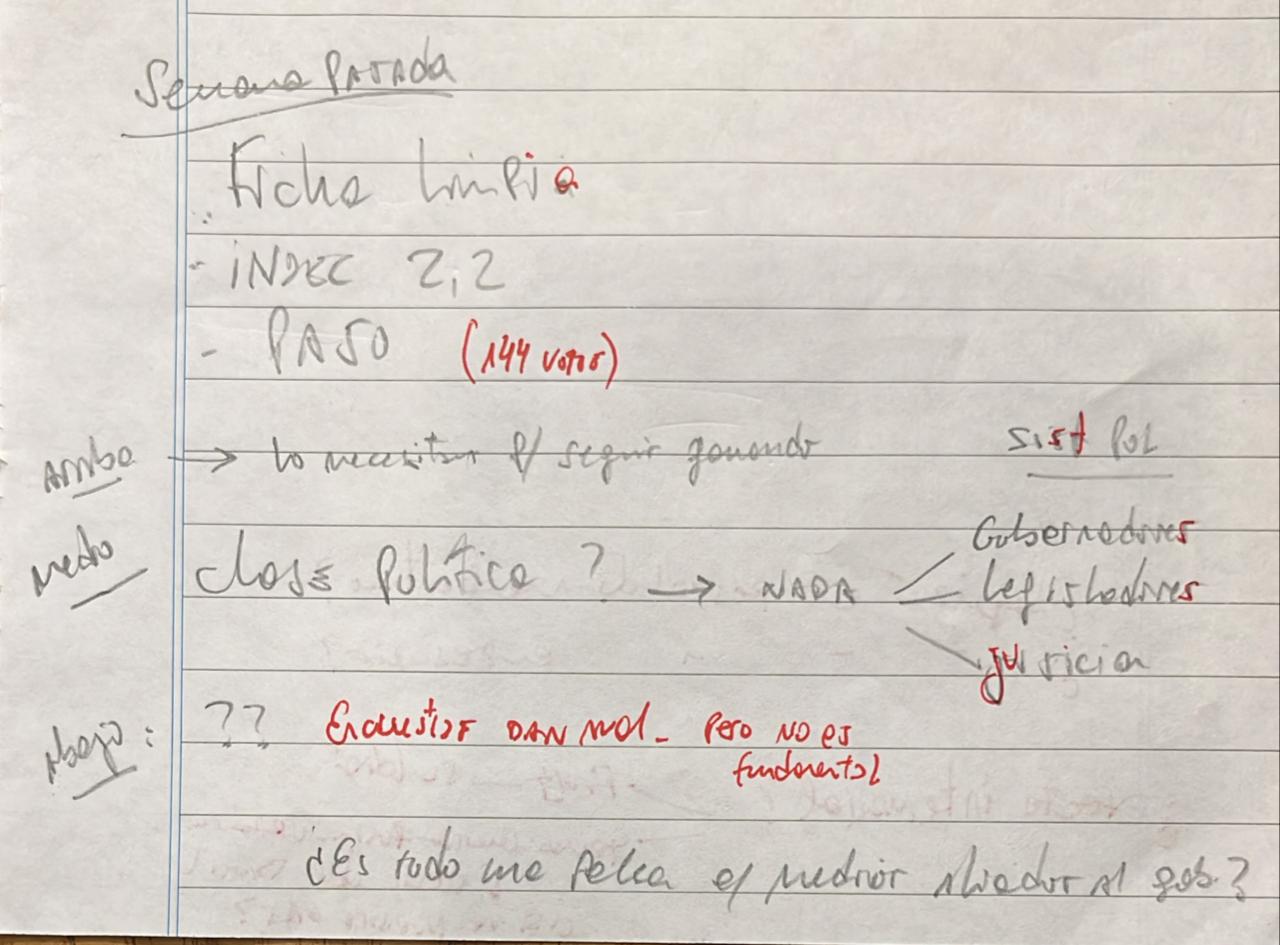 Semana PASADA
Ficha limpia
- INDEC 2,2
- PASO (144 votos)
Arriba → lo necesitan p/ seguir ganando
sist Pol
Medio
Clase Política ? → NADA
Gobernadores
Legisladores
justicia
Abajo : ?? Encuestas DAN mal - Pero NO es
fundamental
¿Es todo una pelea e/ medios aliados al gob.?